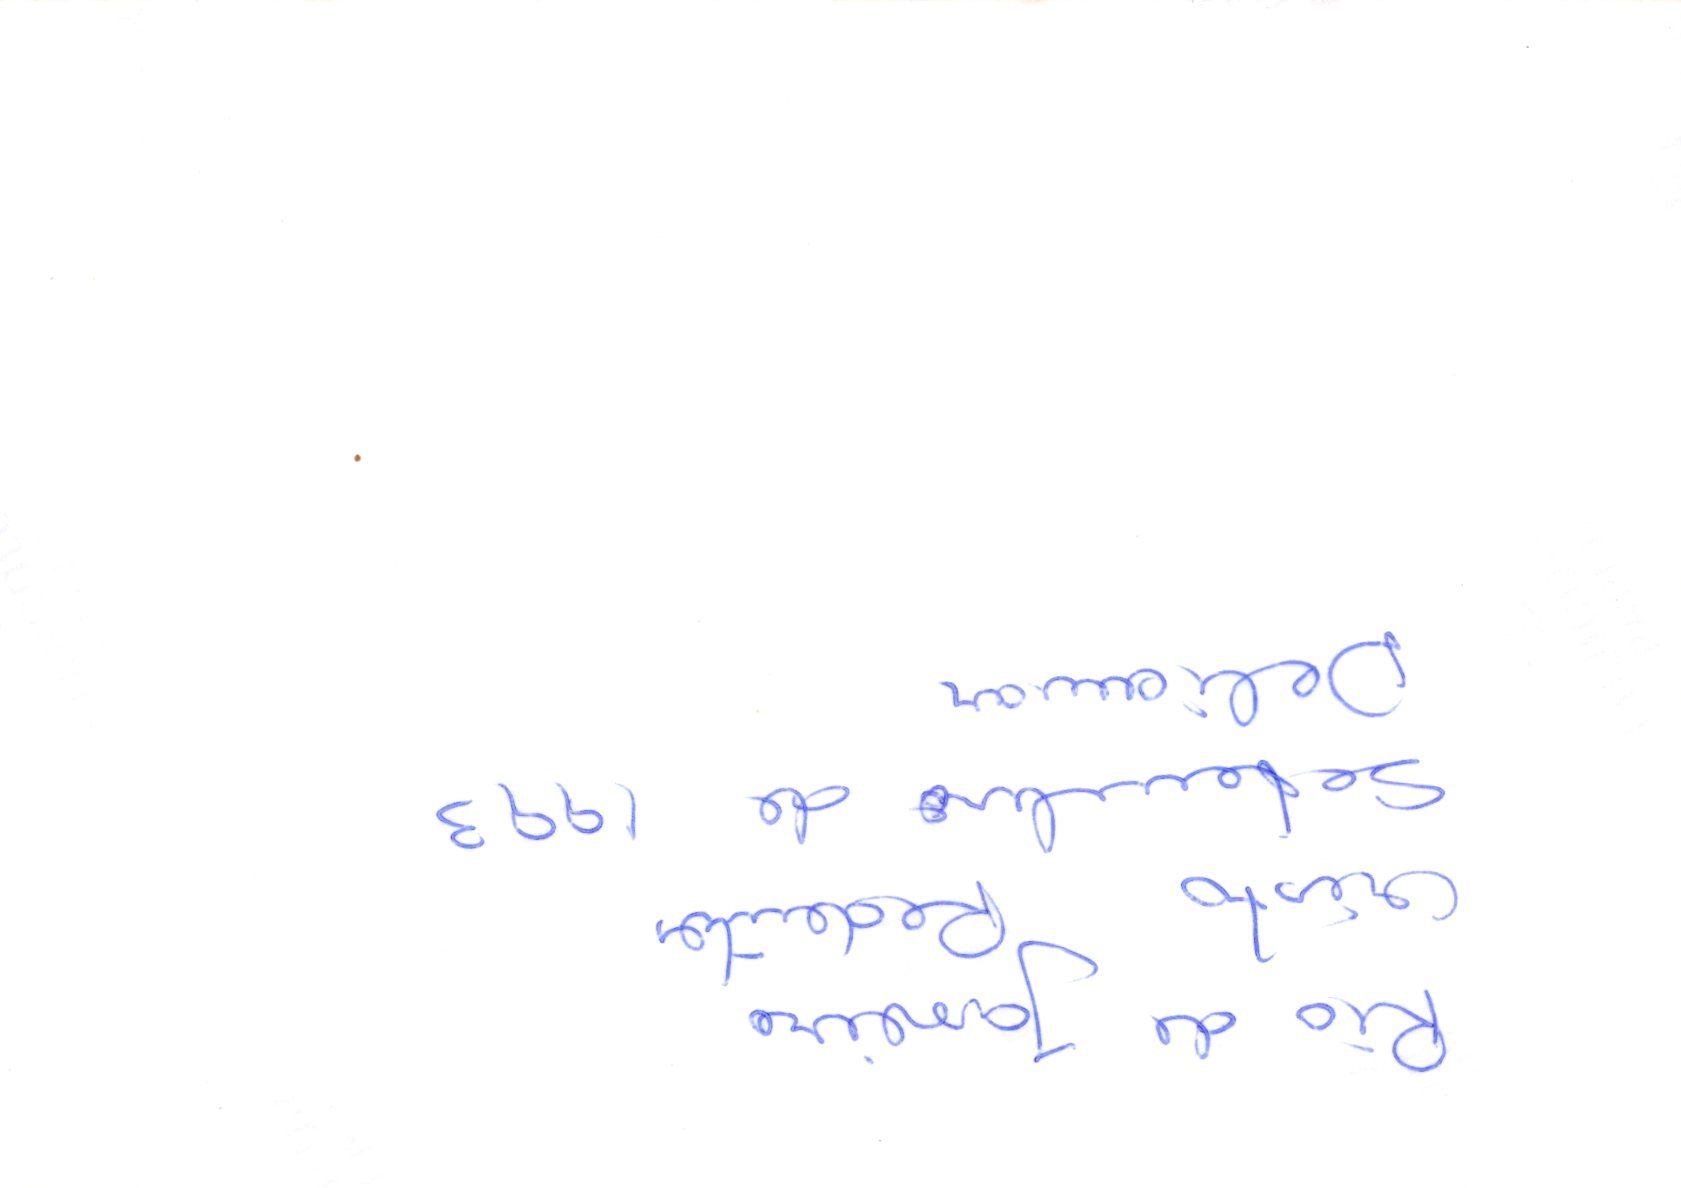 Rio de Janeiro
Cristo Redentor
Setembro de 1993
Deliaman